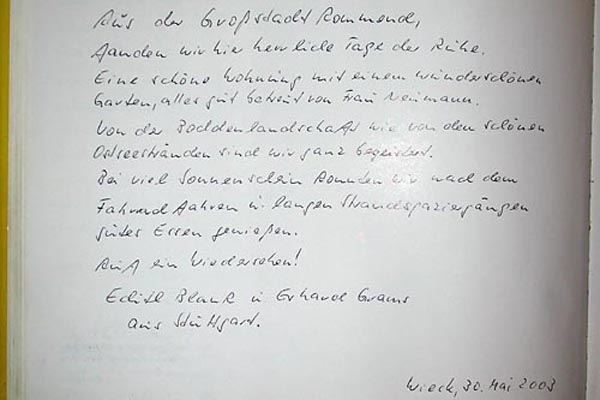 Aus der Großstadt kommend,
fanden wir hier herrliche Tage der Ruhe.
Eine schöne Wohnung mit einem wunderschönen
Garten, alles gut betreut von Frau Neumann.
Von der Boddenlandschaft wie von den schönen
Ostseestränden sind wir ganz begeistert.
Bei viel Sonnenschein konnten wir nach dem
Fahrradfahren u. langen Strandspaziergängen
gutes Essen genießen.
Auf ein Wiedersehen!
Edith Blank u. Erhard Grams
aus Stuttgart.
Wieck, 30. Mai 2003